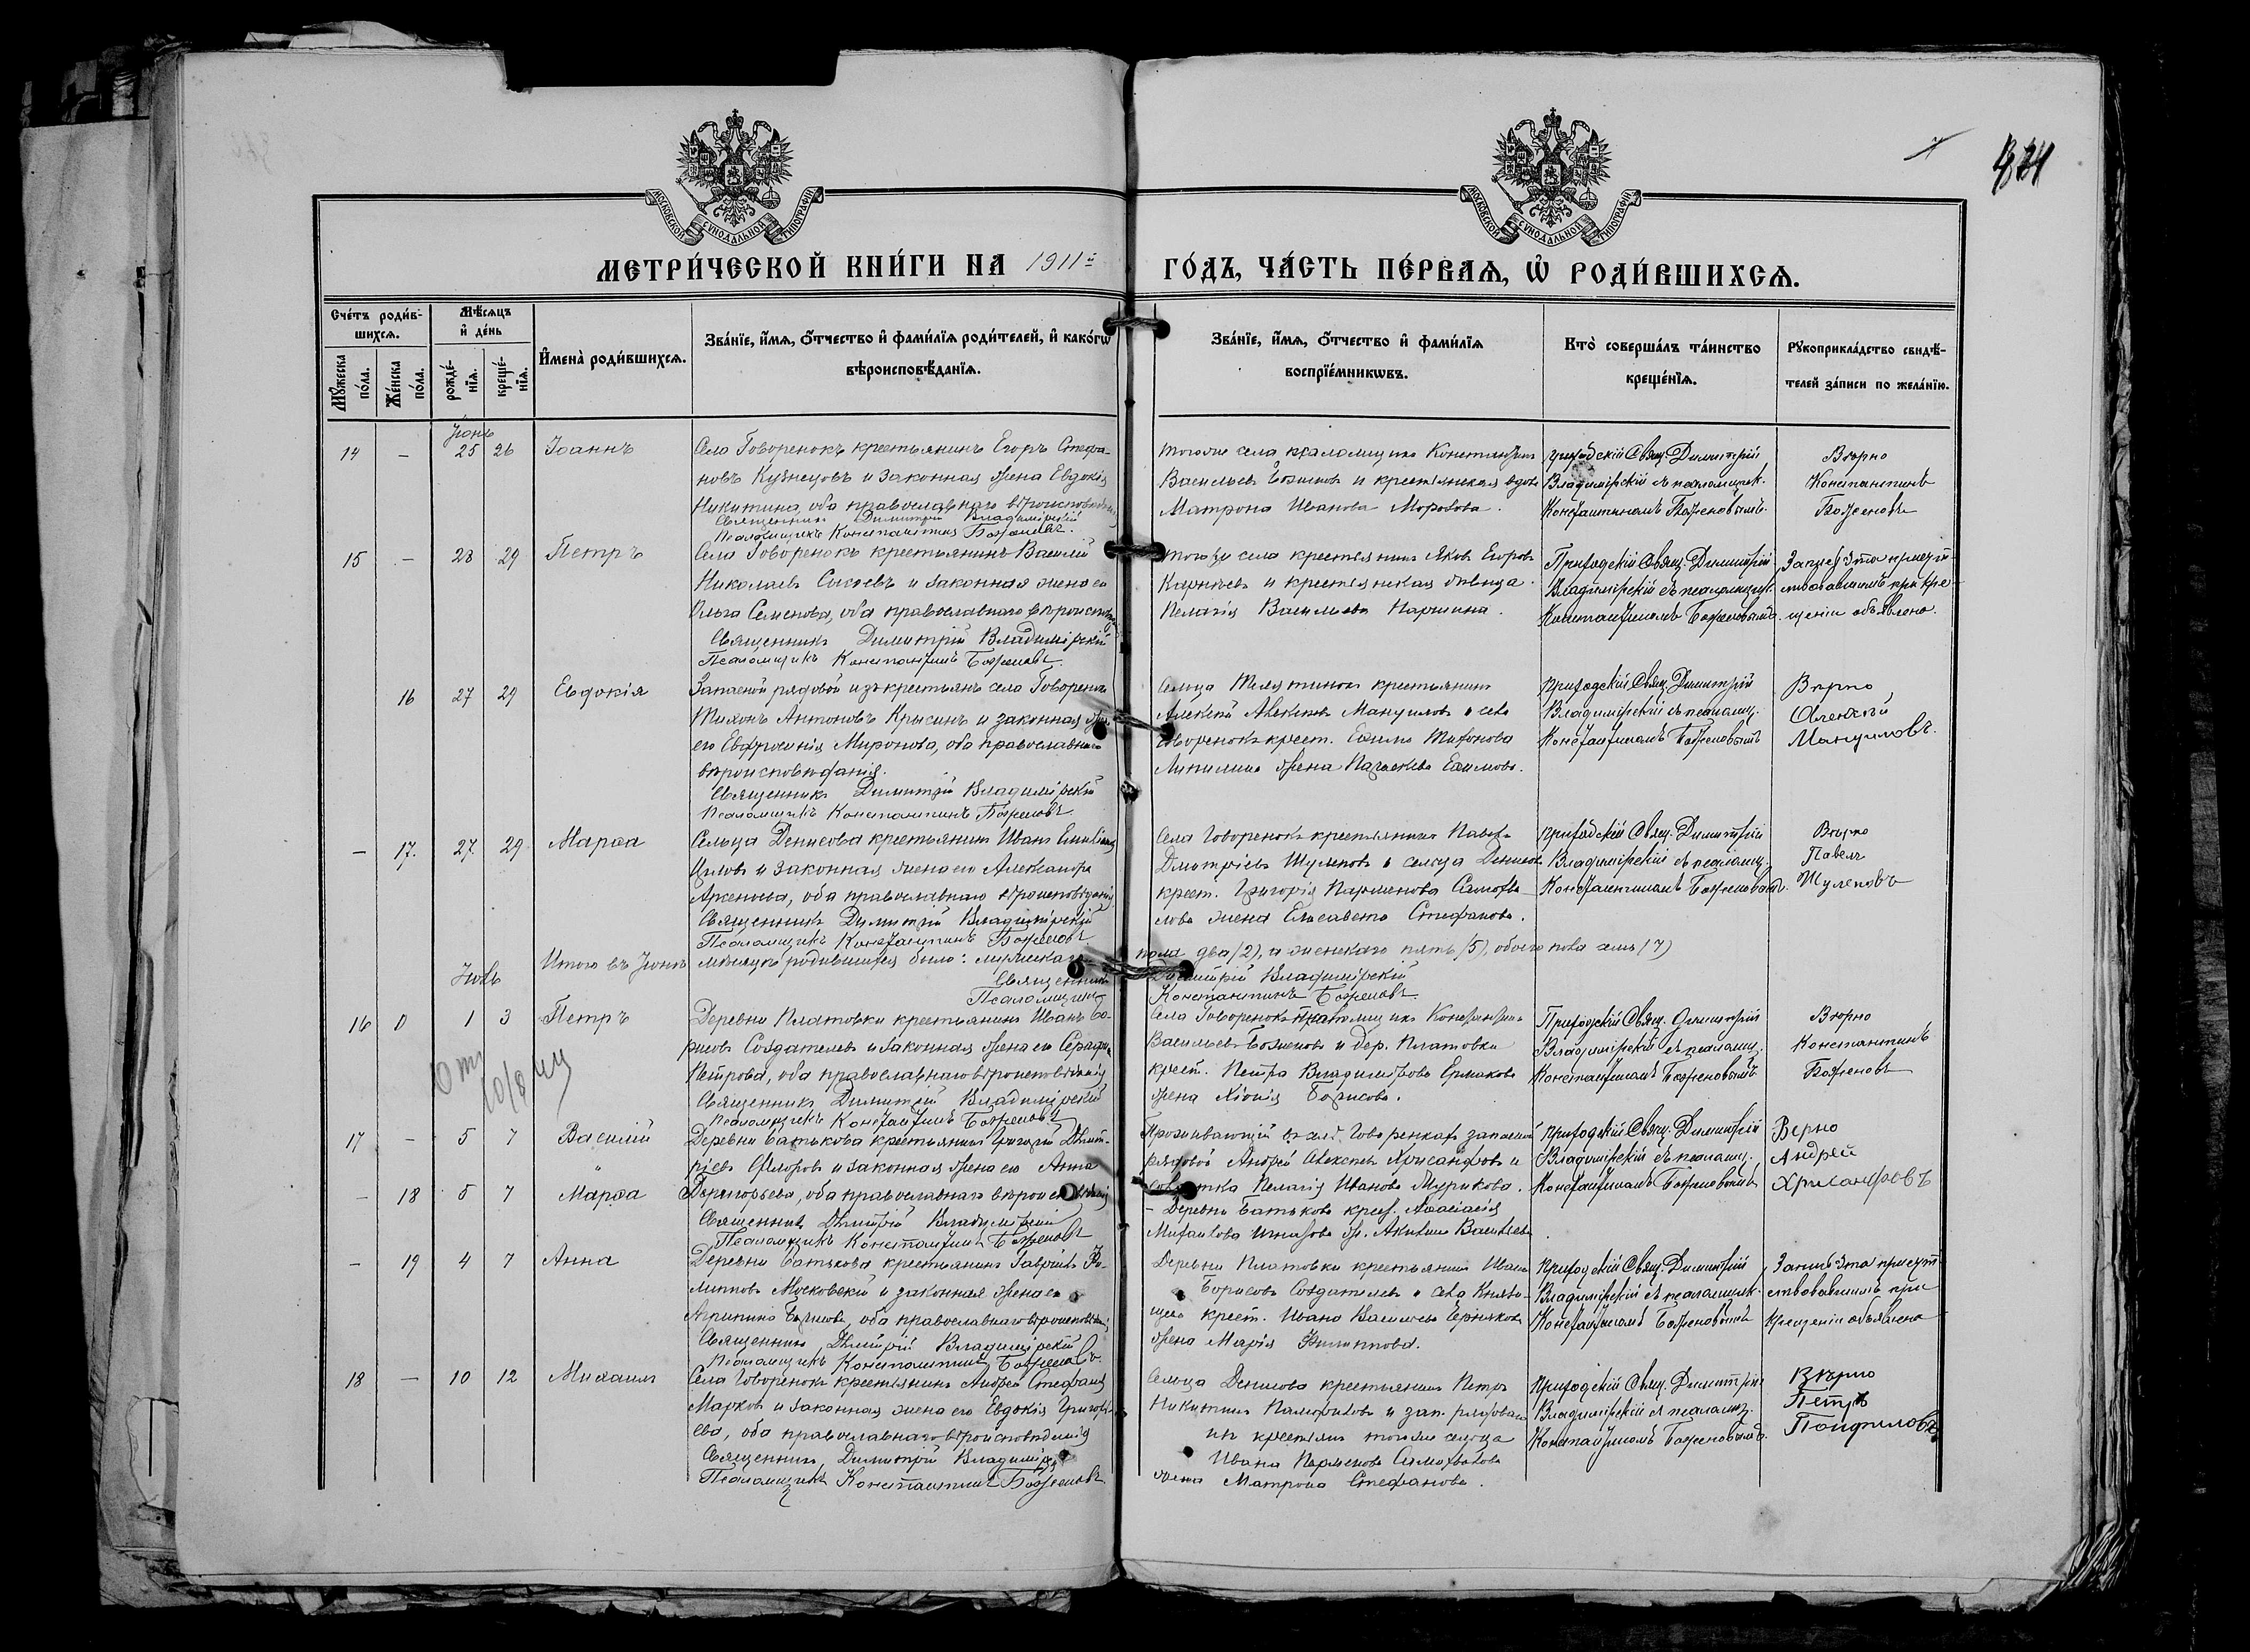 424
МОСКОВСКОЙ СУНОДАЛЬНОЙ ТИПОГРАФІИ
МОСКОВСКОЙ СУНОДАЛЬНОЙ ТИПОГРАФІИ
МЕТРИ́ЧЕСКОЙ КНИ́ГИ НА 1911й ГО́ДЪ, ЧА́СТЬ ПЕ́РВАѦ, Ѡ҆ РОДИ́ВШИХСѦ.
Сче́тъ роди́в-
шихсѧ.
Мꙋ́жеска по́ла.
Же́нска по́ла.
Мѣ́сѧцъ
и҆ де́нь
рожде́-
нїѧ.
креще́-
нїѧ.
И҆мена̀ роди́вшихсѧ.
Зва́нїе, и҆́мѧ, ѻ҆́тчество и҆ фами́лїѧ роди́телей, и҆ како́гѡ
вѣроисповѣ́данїѧ.
Зва́нїе, и҆́мѧ, ѻ҆́тчество и҆ фами́лїѧ
воспрїе́мникѡвъ.
Кто̀ соверша́лъ та́инство
креще́нїѧ.
Рꙋкоприкла́дство свидѣ́-
телей за́писи по жела́нїю.
Іюнь
14 — 25 26 Іоаннъ
Села Говоренокъ крестьянинъ Егоръ Стефа-
новъ Кузнецовъ и законная жена Евдокія
Никитина, оба православнаго вѣроисповѣданія
Священникъ Димитрій Владимірскій
Псаломщикъ Константинъ Боженовъ.
тогоже села псаломщикъ Константинъ
Васильевъ Боженовъ и крестьянская вдова
Матрона Иванова Морозова.
Приходскій Свящ. Димитрій
Владимірскій съ псаломщик.
Константиномъ Боженовымъ.
Вѣрно
Константинъ
Боженовъ
15 — 28 29 Петръ
Села Говоренокъ крестьянинъ Василій
Николаевъ Сысоевъ и законная жена его
Ольга Семенова, оба православнаго вѣроисповѣд.
Священникъ Димитрій Владимірскій
Псаломщикъ Константинъ Боженовъ.
тогоже села крестьянинъ Яковъ Егоровъ
и крестьянская дѣвица
Пелагія Васильева Паршина.
Приходскій Свящ. Димитрій
Владимірскій съ псаломщик.
Константиномъ Боженовымъ.
Запись эта присут-
ствовавшимъ при кре-
щеніи объявлена.
16 27 29 Евдокія
Запасной рядовой изъ крестьянъ села Говоренокъ
Тихонъ Антоновъ Крысинъ и законная жена
его Евфросинія Миронова, оба православнаго
вѣроисповѣданія.
Священникъ Димитрій Владимірскій
Псаломщикъ Константинъ Боженовъ
Сельца крестьянинъ
Алексѣй Алексѣевъ Мануиловъ и села
Говоренокъ крест. Тихонова
жена
Приходскій Свящ. Димитрій
Владимірскій съ псаломщ.
Константиномъ Боженовымъ
Вѣрно
Алексѣй
Мануиловъ.
— 17. 27. 29 Марѳа
Сельца Денисова крестьянинъ Иванъ
и законная жена его Александра
Арсеньева, оба православнаго вѣроисповѣданія
Священникъ Димитрій Владимірскій
Псаломщикъ Константинъ Боженовъ.
Села Говоренокъ крестьянинъ Павелъ
Дмитріевъ Шулеповъ и сельца Денисова
крест. Григорія Парменова Самохва-
лова жена Елисавета Стефанова.
Приходскій Свящ. Димитрій
Владимірскій съ псаломщ.
Константиномъ Боженовымъ.
Вѣрно
Павелъ
Шулеповъ
Итого въ Іюнѣ мѣсяцѣ родившихся было: мужскаго пола два (2), а женскаго пять (5), обоего пола семь (7)
Священникъ Димитрій Владимірскій
Псаломщикъ Константинъ Боженовъ.
Іюль
16 0 1 3 Петръ
Деревни Платовки крестьянинъ Иванъ Бо-
рисовъ Создателевъ и законная жена его Серафима
Петрова, оба православнаго вѣроисповѣданія
Священникъ Димитрій Владимірскій
Псаломщикъ Константинъ Боженовъ
Села Говоренокъ псаломщикъ Константинъ
Васильевъ Боженовъ и дер. Платовки
крест. Петра Владимірова Ермакова
жена Хіонія Борисова.
Приходскій Свящ. Димитрій
Владимірскій съ псаломщ.
Константиномъ Боженовымъ
Вѣрно
Константинъ
Боженовъ
17 — 5 7 Василій
— 18 5 7 Марѳа
Деревни Батькова крестьянинъ Григорій Дмит-
ріевъ Флоровъ и законная жена его Анна
Григорьева, оба православнаго вѣроисповѣданія
Священникъ Дмитрій Владимірскій
Псаломщикъ Константинъ Боженовъ
Проживающій въ сел. Говоренкахъ запасной
рядовой Андрей Алексѣевъ Хрисанфовъ и
Пелагія Иванова Мурикова.
— Деревни Батькова крест. Аѳанасія
Михаилова
Приходскій Свящ. Димитрій
Владимірскій съ псаломщ.
Константиномъ Боженовымъ
Верно
Андрей
Хрисанфовъ
— 19 4 7 Анна
Деревни Батькова крестьянинъ Гавріилъ Фи-
липповъ Московскій и законная жена его
Агрипина , оба православнаго вѣроисповѣданія
Священникъ Дмитрій Владимірскій
Псаломщикъ Константинъ Боженовъ.
Деревни Платовки крестьянинъ Иванъ
Борисовъ Создателевъ и села
крест. Ивана Васильева
жена Марія Филиппова.
Приходскій Свящ. Димитрій
Владимірскій съ псаломщик.
Константиномъ Боженовымъ
Запись эта присут-
ствовавшимъ при
крещеніи объявлена
18 — 10 12 Михаилъ
Села Говоренокъ крестьянинъ Андрей Стефановъ
Марковъ и законная жена его Евдокія Григорь-
ева, оба православнаго вѣроисповѣданія
Священникъ Димитрій Владимірскій
Псаломщикъ Константинъ Боженовъ
Сельца Денисова крестьянинъ Петръ
Никитинъ Памфиловъ и зап. рядового
изъ крестьянъ тогоже сельца
Ивана Парменова Самохвалова
жена Матрона Стефанова.
Приходскій Свящ. Димитрій
Владимірскій съ псаломщ.
Константиномъ Боженовымъ.
Вѣрно
Петръ
Панфиловъ